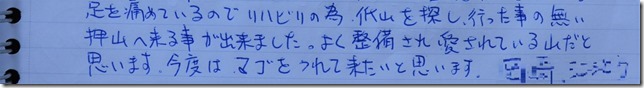 足を痛めているのでリハビリの為、低山を探し、行った事の無い
押山へ来る事が出来ました。よく整備され愛されている山だと
思います。今度はマゴをつれて来たいと思います。